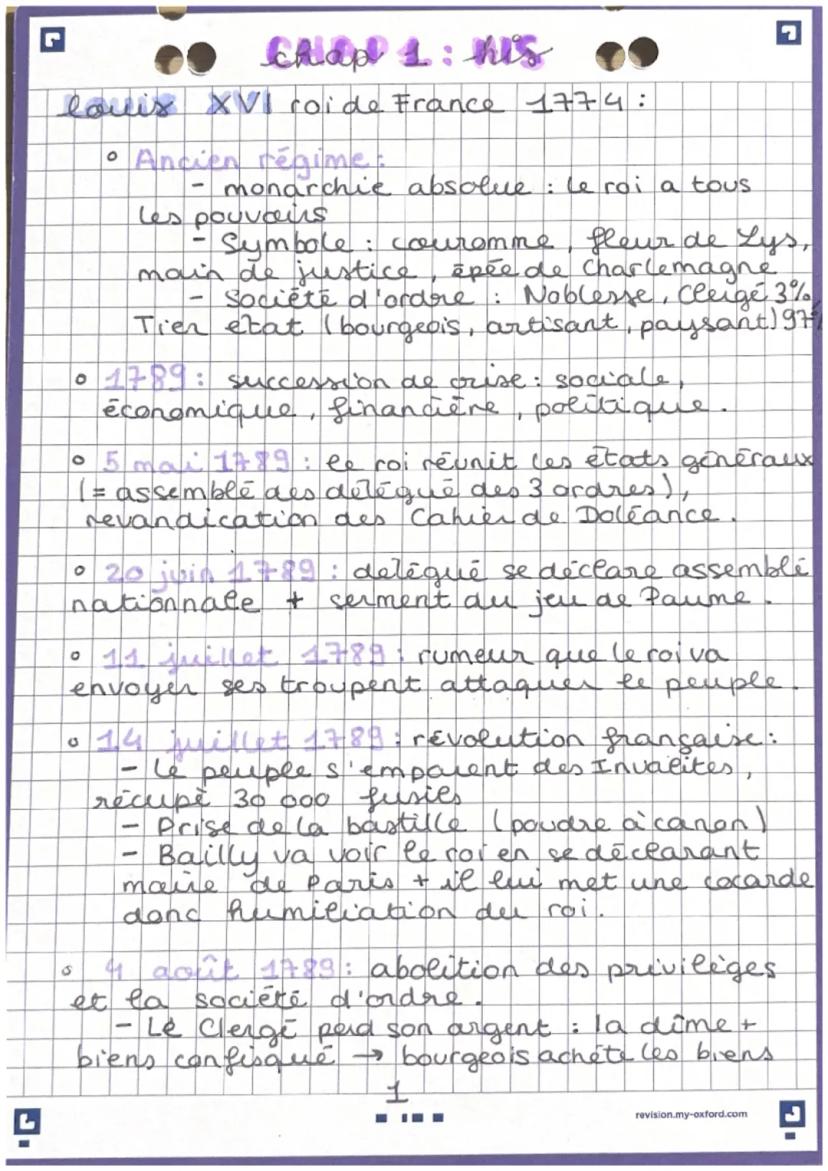 chap 1 : his
Louis XVI roi de France 1774 :
Ancien régime :
- monarchie absolue : le roi a tous
les pouvoirs
- Symbole : couronne, fleur de Lys,
main de justice, épée de Charlemagne
- Société d'ordre : Noblesse, Clergé 3%,
Tier etat (bourgeois, artisant, paysant) 97%
1789 : succession de crise : sociale,
économique, financière, politique.
5 mai 1789 : le roi réunit les états généraux
(= assemblé des délégué des 3 ordres),
revandication des Cahier de Doléance.
20 juin 1789 : délégué se déclare assemblé
nationnale + serment du jeu de Paume.
11 juillet 1789 : rumeur que le roi va
envoyer ses troupent attaquer le peuple.
14 juillet 1789 : révolution française :
- le peuple s'emparent des Invalites,
récupè 30 000 fusies
- Prise de la bastille (poudre à canon)
- Bailly va voir le roi en se déclarant
maire de Paris + il lui met une cocarde
donc humiliation du roi.
4 août 1789 : abolition des privilèges
et la société d'ordre.
- Le Clergé perd son argent : la dîme +
biens confisqué → bourgeois achète les biens
1
revision.my-oxford.com